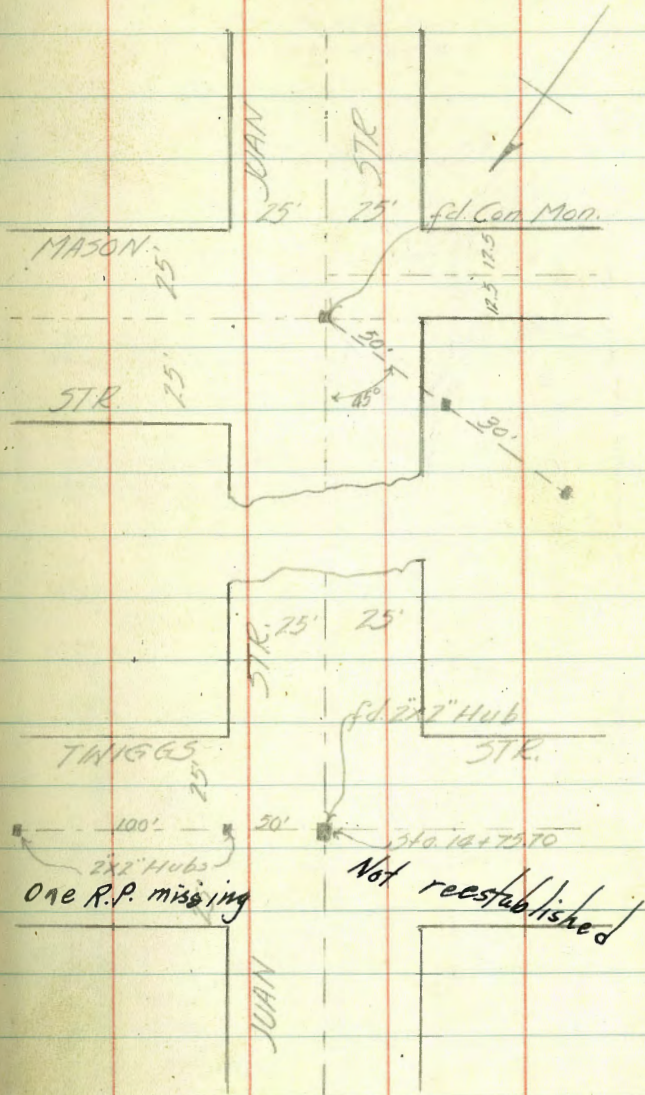 JUAN STR
25' 25' fd. Con. Mon.
MASON
25'
12.5 12.5
50'
45°
25'
STR
30'
STR. 25' 25'
fd. 2"x2" Hub
TWIGGS STR.
25'
100' 50' Sta. 14+75.70
2"x2" Hubs
One R.P. missing
Not reestablished
JUAN